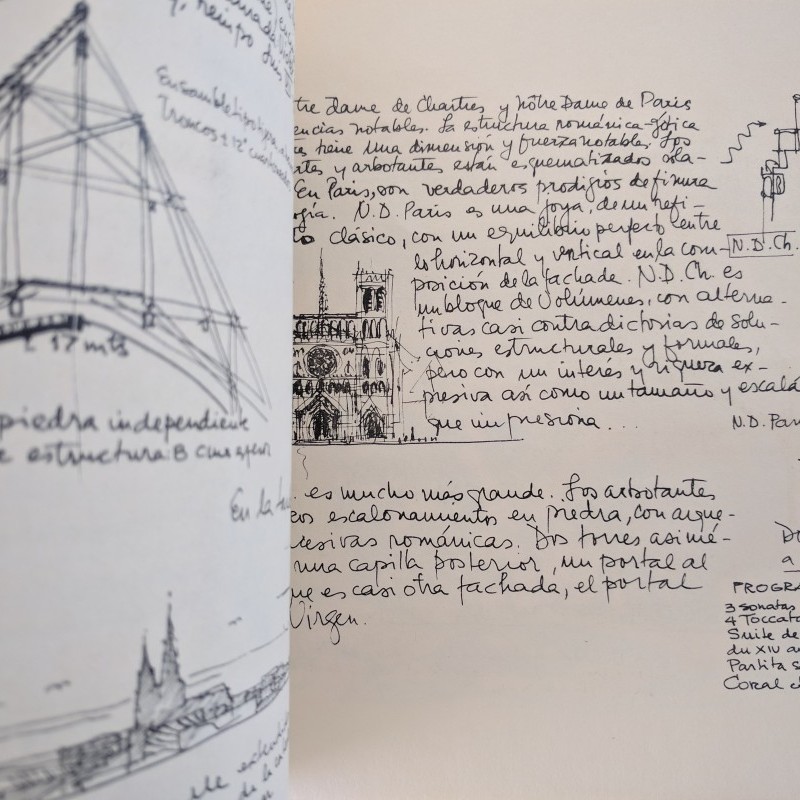 y tiempo
Ensamble
Troncos
17 mts
piedra independiente
estructura: 8 cms
En la
de la
tre Dame de Chartres y Nôtre Dame de Paris
encias notables. La estructura románica-gótica
es tiene una dimensión y fuerza notables. Los
rtes y arbotantes están esquematizados ola-
En Paris, son verdaderos prodigios de finura
ogía. N.D. Paris es una joya, de un refi-
to clásico, con un equilibrio perfecto entre
lo horizontal y vertical en la com-
posición de la fachada. N.D. Ch. es
un bloque de volúmenes, con alterna-
tivas casi contradictorias de solu-
ciones estructurales y formales,
pero con un interés y riqueza ex-
presiva así como un tamaño y escala
que impresiona...
es mucho más grande. Los arbotantes
cos escalonamientos en piedra, con arque-
cesivas románicas. Dos torres asimé-
una capilla posterior, un portal al
ue es casi otra fachada, el portal
Virgen.
N.D. Ch.
N.D. Par
a
PROGRA
3 sonatas
4 Toccata
Suite de
du XIV
Partita s
Coral